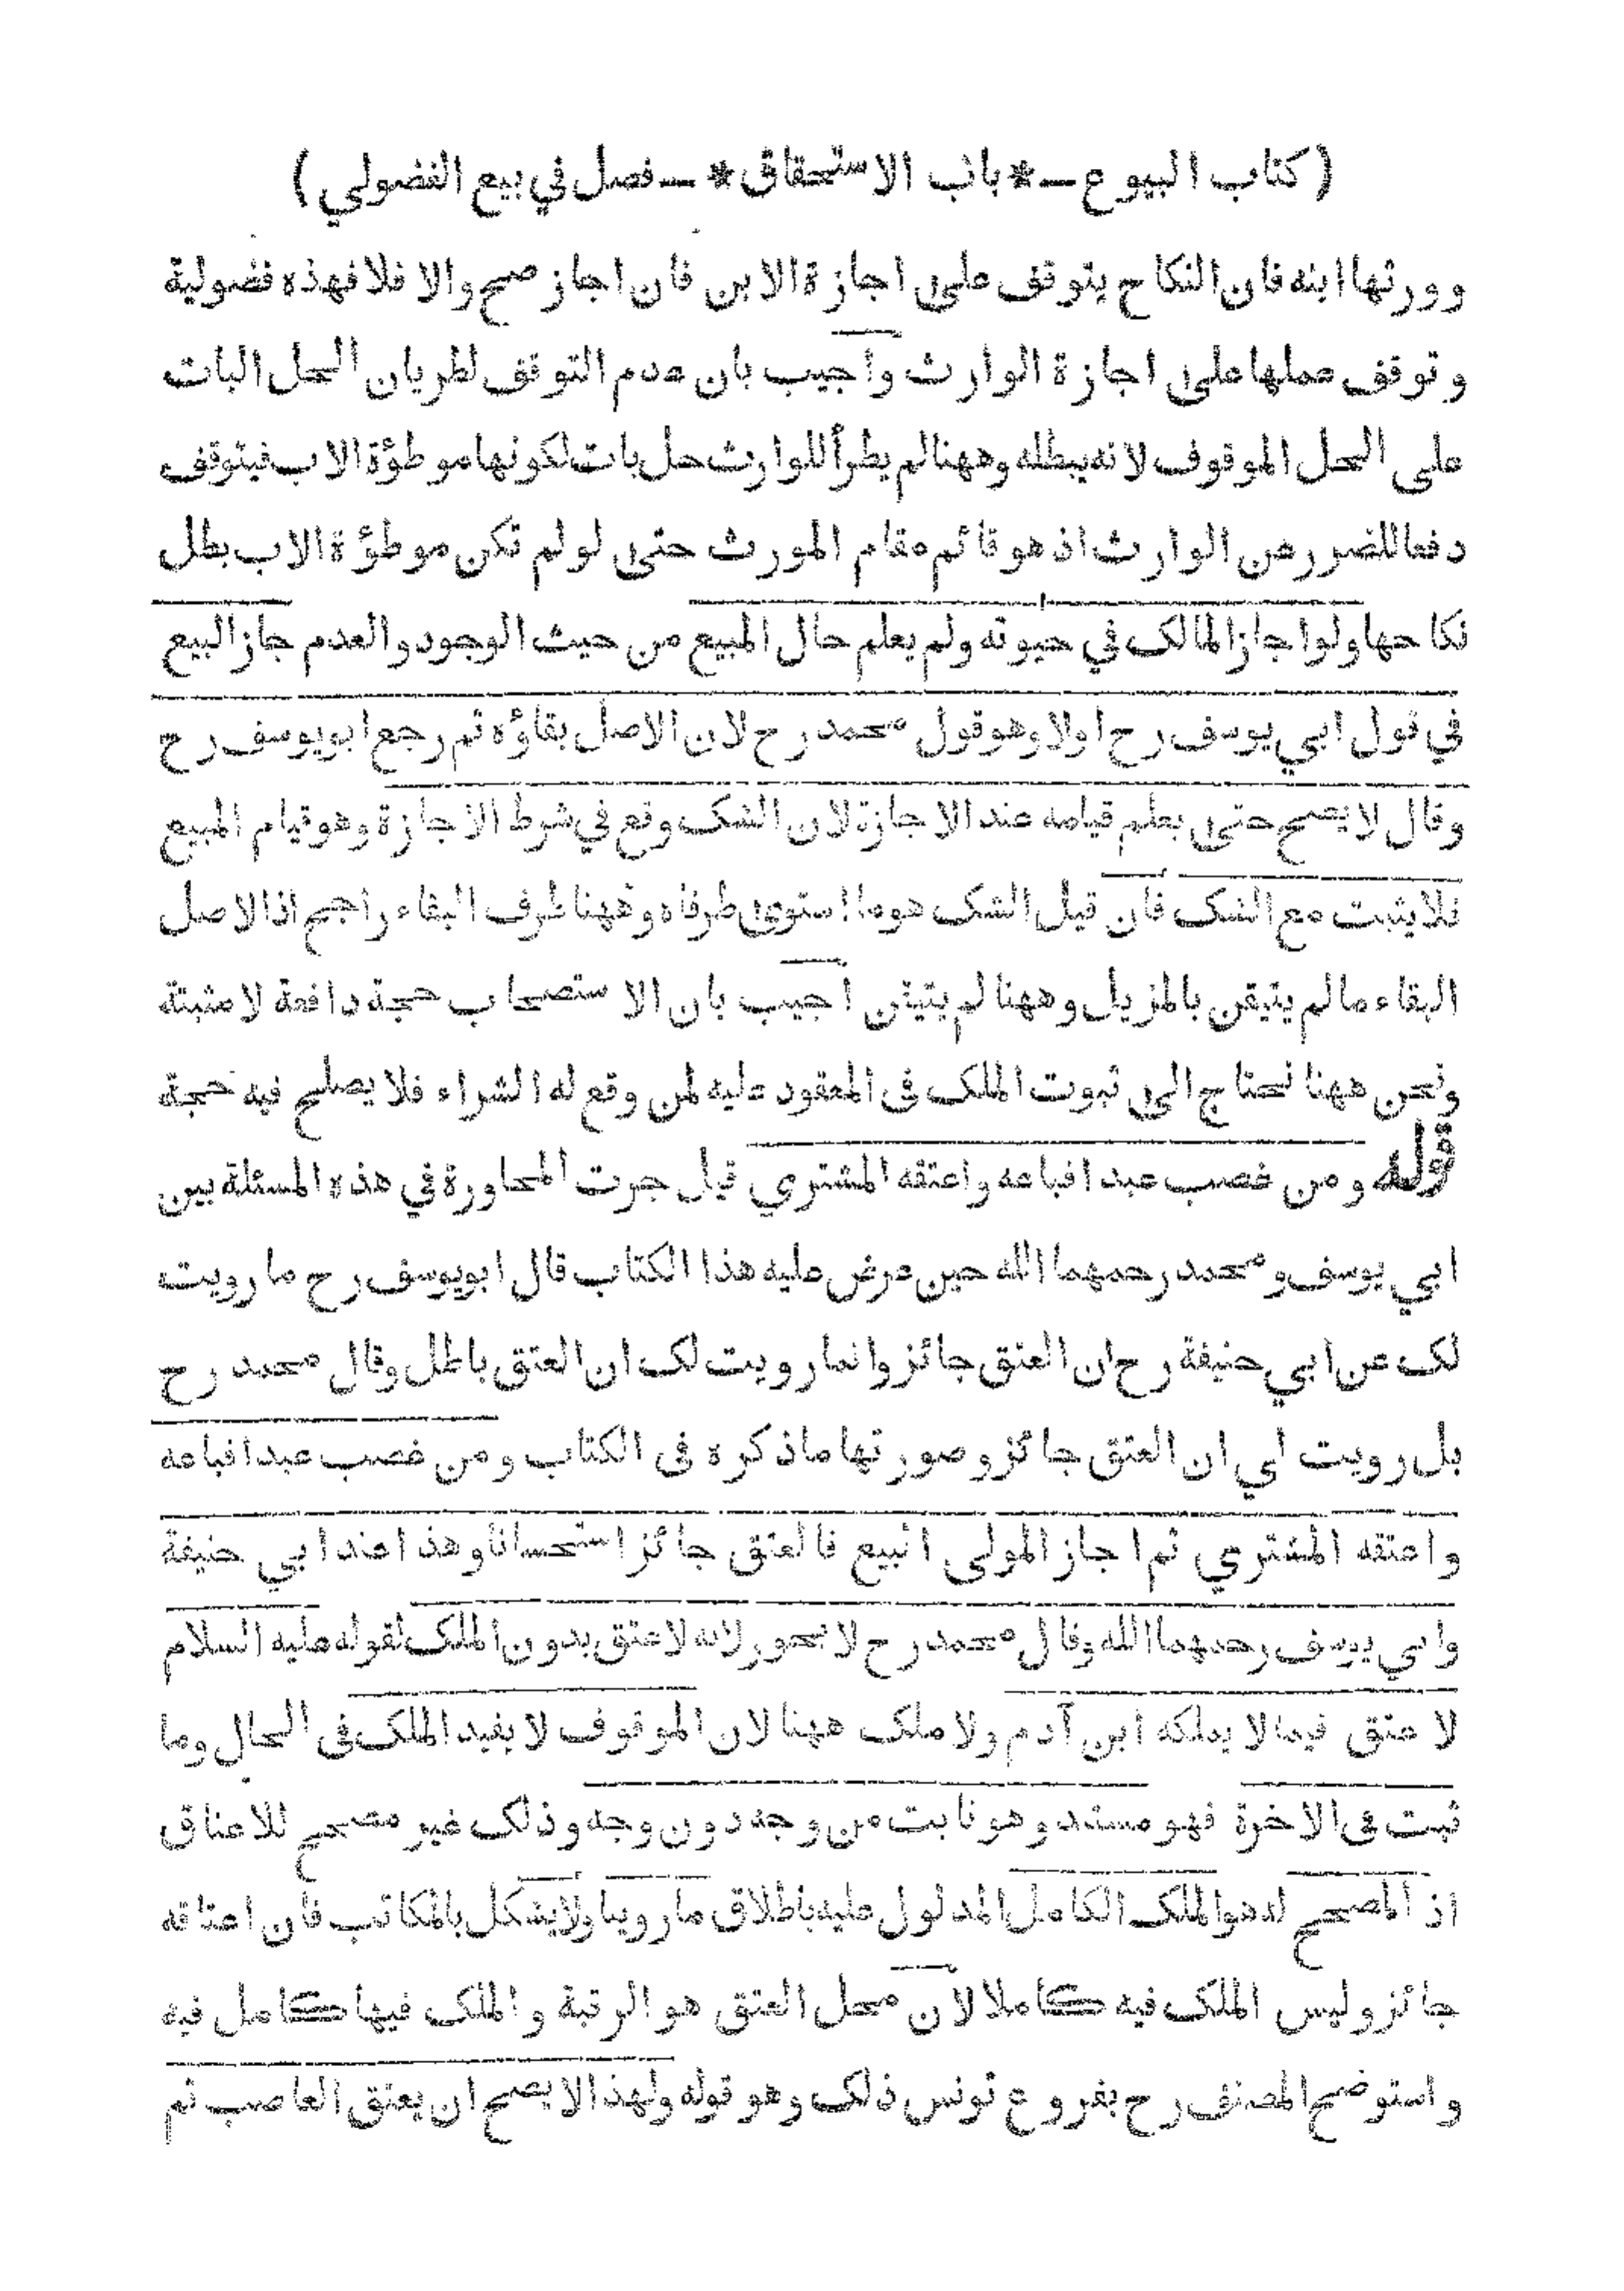 ( كتاب البيوع — * باب الاستحقاق * — فصل في بيع الفضولي )
وورثها ابنه فان النكاح يتوقف على اجازة الابن فان اجاز صح والا فلا فهذه فضولية
وتوقف عملها على اجازة الوارث واجيب بان عدم التوقف لطريان الحل البات
على الحل الموقوف لانه يبطله وههنا لم يطرأ للوارث حل بات لكونها موطؤة الاب فيتوقف
دفعا للضرر عن الوارث اذ هو قائم مقام المورث حتى لو لم تكن موطؤة الاب بطل
نكاحها ولو اجاز المالك في حيوته ولم يعلم حال المبيع من حيث الوجود والعدم جاز البيع
في قول ابي يوسف رح اولا وهو قول محمد رح لان الاصل بقاؤه ثم رجع ابو يوسف رح
وقال لا يصح حتى يعلم قيامه عند الاجازة لان الشك وقع في شرط الاجازة وهو قيام المبيع
فلا يثبت مع الشك فان قيل الشك هو ما استوى طرفاه وههنا طرف البقاء راجح اذ الاصل
البقاء ما لم يتيقن بالمزيل وههنا لم يتيقن اجيب بان الاستصحاب حجة دافعة لا مثبتة
ونحن ههنا نحتاج الى ثبوت الملك فى المعقود عليه لمن وقع له الشراء فلا يصلح فيه حجة
قوله ومن غصب عبدا فباعه واعتقه المشتري قيل جرت المحاورة في هذه المسئلة بين
ابي يوسف ومحمد رحمهما الله حين عرض عليه هذا الكتاب قال ابو يوسف رح ما رويت
لك عن ابي حنيفة رح ان العتق جائز وانما رويت لك ان العتق باطل وقال محمد رح
بل رويت لي ان العتق جائز وصورتها ما ذكره فى الكتاب ومن غصب عبدا فباعه
واعتقه المشتري ثم اجاز المولى البيع فالعتق جائز استحسانا وهذا عند ابي حنيفة
وابي يوسف رحمهما الله وقال محمد رح لا يجوز لانه لا عتق بدون الملك لقوله عليه السلام
لا عتق فيما لا يملكه ابن آدم ولا ملك ههنا لان الموقوف لا يفيد الملك فى الحال وما
ثبت فى الاخرة فهو مستند وهو ثابت من وجه دون وجه وذلك غير مصحح للاعتاق
اذ المصحح له هو الملك الكامل المدلول عليه باطلاق ما روينا ولا يشكل بالمكاتب فان اعتاقه
جائز وليس الملك فيه كاملا لان محل العتق هو الرقبة والملك فيها كامل فيه
واستوضح المصنف رح بفروع تونس ذلك وهو قوله ولهذا لا يصح ان يعتق الغاصب ثم